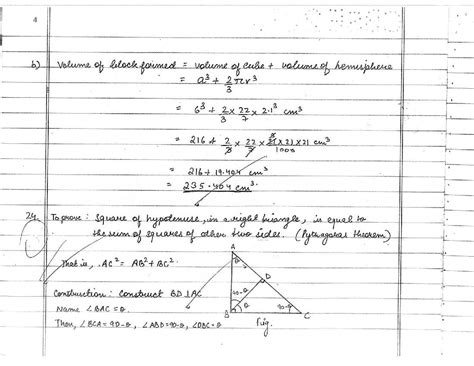 4
b) Volume of block formed = volume of cube + volume of hemisphere
= a³ + 2/3 πr³
= 6³ + 2/3 × 22/7 × 2.1³ cm³
= 216 + 2/3 × 22/7 × 21×21×21/1000 cm³
= 216 + 19.404 cm³
= 235.404 cm³.
24. To prove : Square of hypotenuse, in a right triangle, is equal to
the sum of squares of other two sides. (Pythagoras theorem)
That is, AC² = AB² + BC².
A
D
90-θ
θ
90-θ
B
C
Fig.
Construction : Construct BD ⊥ AC
Name ∠BAC = θ.
Then, ∠BCA = 90-θ, ∠ABD = 90-θ, ∠DBC = θ